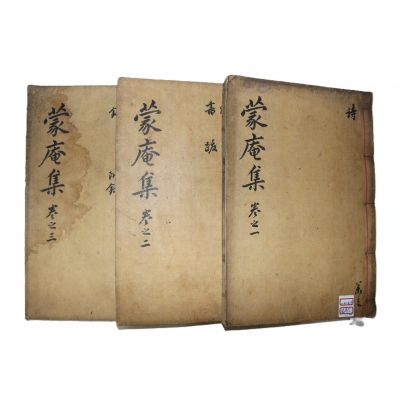 詩
蒙庵集
卷之一
書
蒙庵集
卷之二
蒙庵集
卷之三
附錄